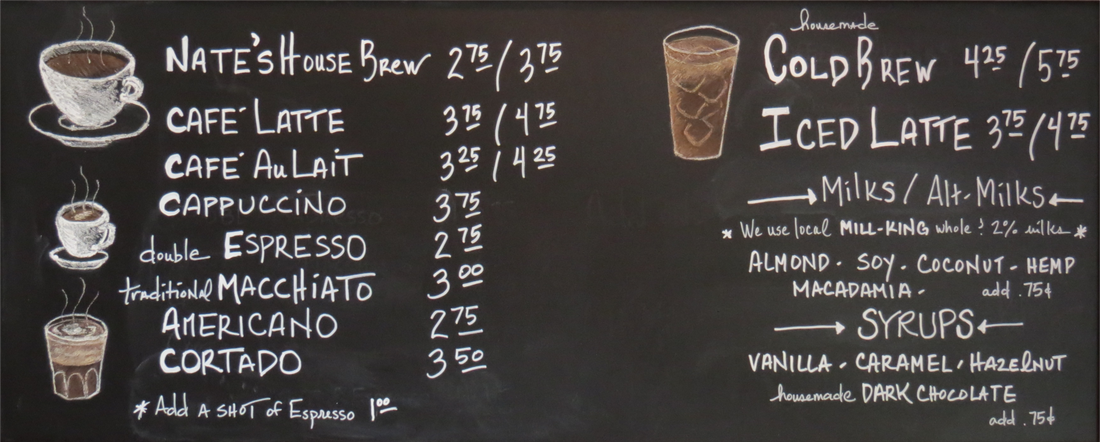 NATE'S HOUSE BREW 2.75 / 3.75
CAFÉ LATTE 3.75 / 4.75
CAFÉ AU LAIT 3.25 / 4.25
CAPPUCCINO 3.75
double ESPRESSO 2.75
traditional MACCHIATO 3.00
AMERICANO 2.75
CORTADO 3.50
* Add A SHOT of Espresso 1.00
housemade
COLD BREW 4.25 / 5.75
ICED LATTE 3.75 / 4.75
→ Milks / Alt-Milks ←
* We use local MILL-KING whole & 2% milks *
ALMOND - SOY - COCONUT - HEMP
MACADAMIA - add .75¢
→ SYRUPS ←
VANILLA - CARAMEL - HAZELNUT
housemade DARK CHOCOLATE
add .75¢